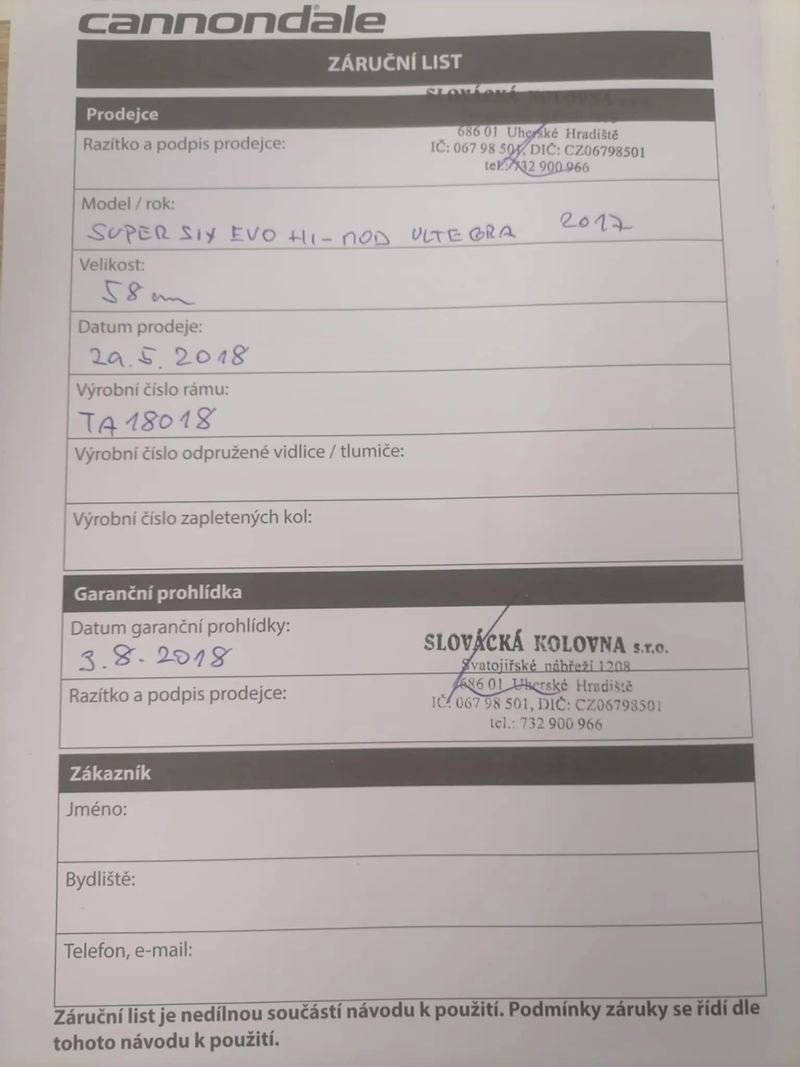 cannondale
ZÁRUČNÍ LIST
SLOVÁCKÁ KOLOVNA s.r.o.
Prodejce
686 01 Uherské Hradiště
Razítko a podpis prodejce:
IČ: 067 98 501, DIČ: CZ06798501
tel.: 732 900 966
Model / rok:
SUPER SIX EVO HI-MOD ULTEGRA 2017
Velikost:
58 cm
Datum prodeje:
29.5.2018
Výrobní číslo rámu:
TA18018
Výrobní číslo odpružené vidlice / tlumiče:
Výrobní číslo zapletených kol:
Garanční prohlídka
Datum garanční prohlídky:
3.8.2018
SLOVÁCKÁ KOLOVNA s.r.o.
Svatojiřské nábřeží 1208
686 01 Uherské Hradiště
Razítko a podpis prodejce:
IČ: 067 98 501, DIČ: CZ06798501
tel.: 732 900 966
Zákazník
Jméno:
Bydliště:
Telefon, e-mail:
Záruční list je nedílnou součástí návodu k použití. Podmínky záruky se řídí dle
tohoto návodu k použití.